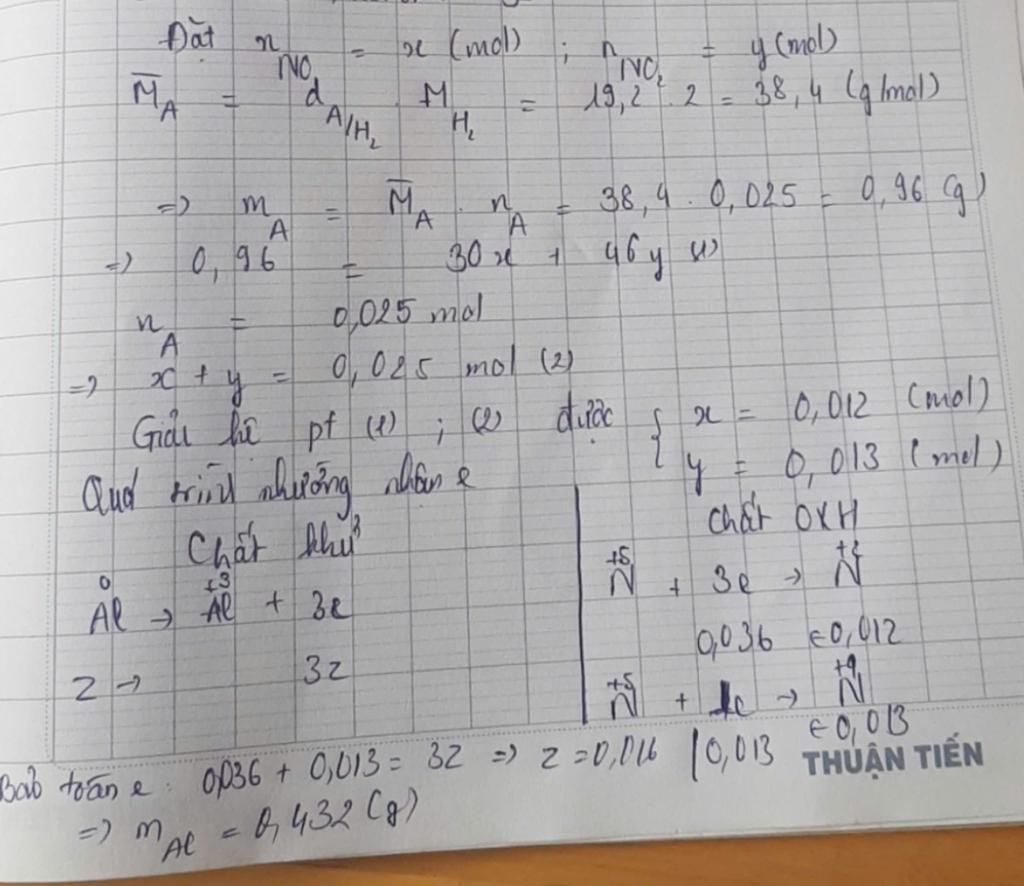 Đặt n_NO = x (mol) ; n_NO₂ = y (mol)
M̅_A = d_A/H₂ . M_H₂ = 19,2 . 2 = 38,4 (g/mol)
=> m_A = M̅_A . n_A = 38,4 . 0,025 = 0,96 (g)
=> 0,96 = 30x + 46y (1)
n_A = 0,025 mol
=> x + y = 0,025 mol (2)
Giải hệ pt (1) ; (2) được { x = 0,012 (mol)
y = 0,013 (mol)
Quá trình nhường nhận e
Chất khử
Chất OXH
Al⁰ → Al⁺³ + 3e
N⁺⁵ + 3e → N⁺²
0,036 ← 0,012
z → 3z
N⁺⁵ + 1e → N⁺⁴
0,013 ← 0,013
THUẬN TIẾN
Bảo toàn e : 0,036 + 0,013 = 3z => z = 0,016
=> m_Al = 0,432 (g)